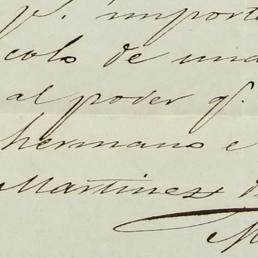 qe. importe
colo de una
al poder qe.
hermano e
Martinez de
M